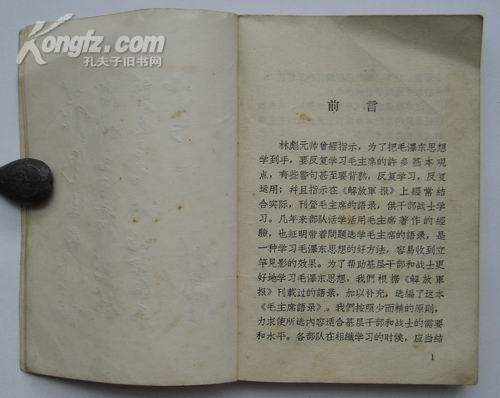 Kongfz.com
孔夫子旧书网
前言
林彪元帅曾經指示，为了把毛澤东思想
学到手，要反复学习毛主席的許多基本观
点，有些警句甚至要背熟，反复学习，反复
运用；幷且指示在《解放軍报》上經常結
合实际，刊登毛主席的語录，供干部战士学
习。几年来部队活学活用毛主席著作的經
驗，也証明带着問題选学毛主席的語录，是
一种学习毛澤东思想的好方法，容易收到立
竿見影的效果。为了帮助基层干部和战士更
好地学习毛澤东思想，我們根据《解放軍
报》刊載过的語录，加以补充，选編了这本
《毛主席語录》。我們按照少而精的原則，
力求使所选內容适合基层干部和战士的需要
和水平。各部队在組織学习的时候，应当結
1